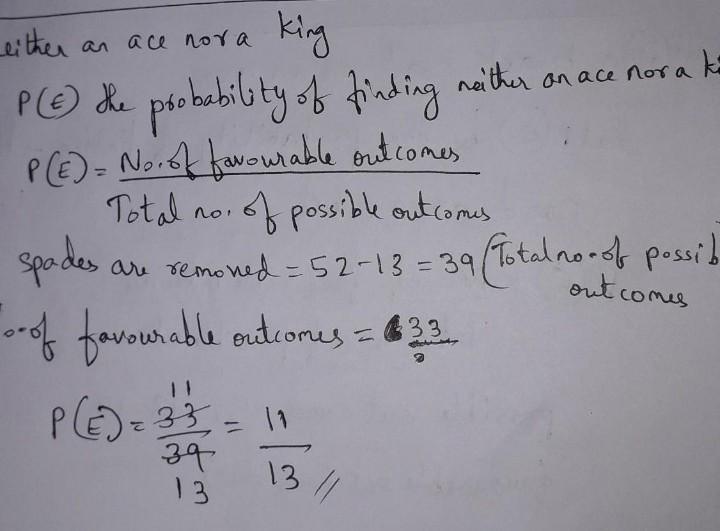 either an ace nor a king
P(E) the probability of finding neither an ace nor a ki
P(E) = No. of favourable outcomes
Total no. of possible outcomes
spades are removed = 52 - 13 = 39 (Total no. of possib
outcomes
o. of favourable outcomes = 33
P(E) = 33/39 = 11/13 //
11
13